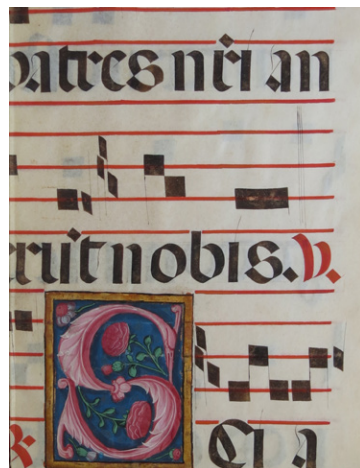 patres nr̃i an
erũt nobis. V.
SCI A